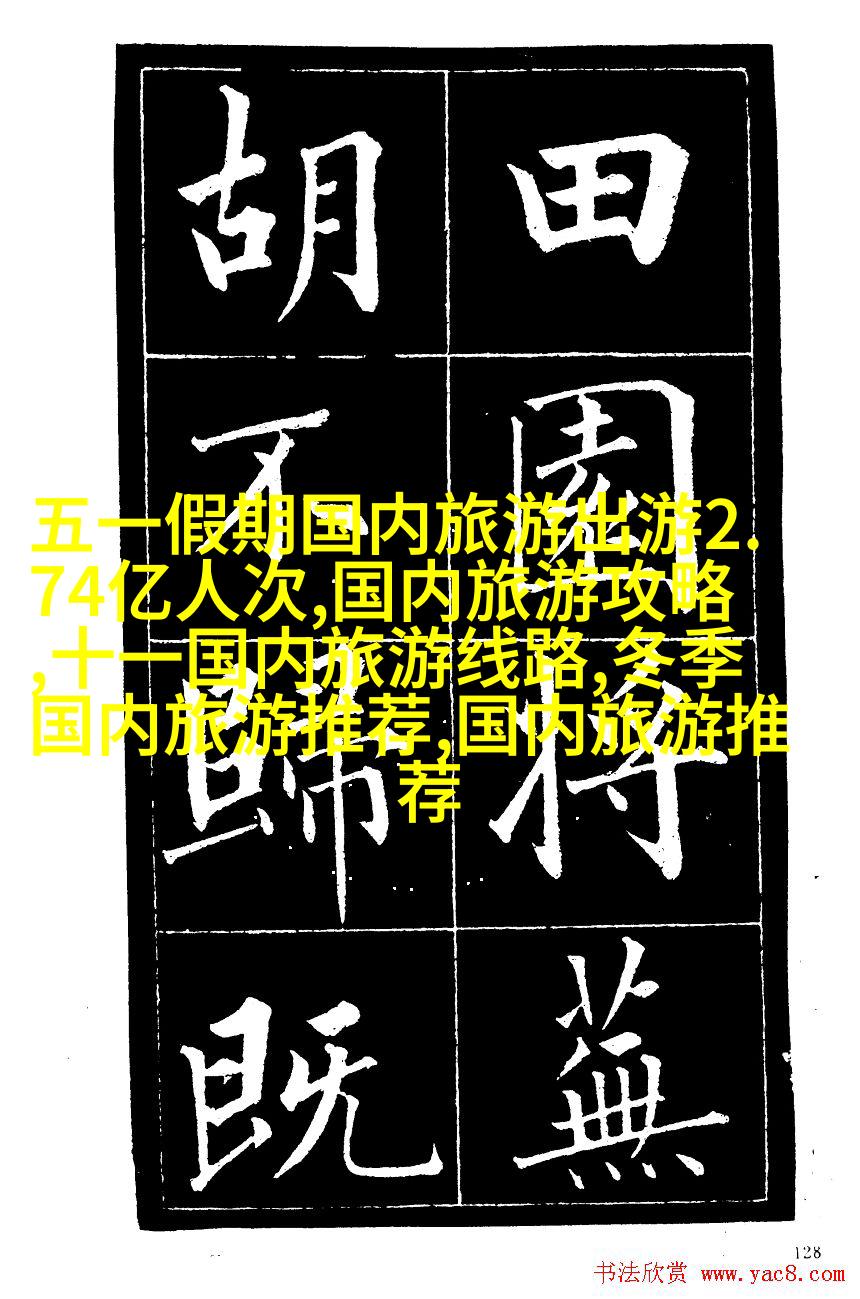 田園将蕪
胡不歸既
五一假期国内旅游出游2.
74亿人次,国内旅游攻略
,十一国内旅游线路,冬季
国内旅游推荐,国内旅游推
荐
128
书法欣赏 www.yac8.com